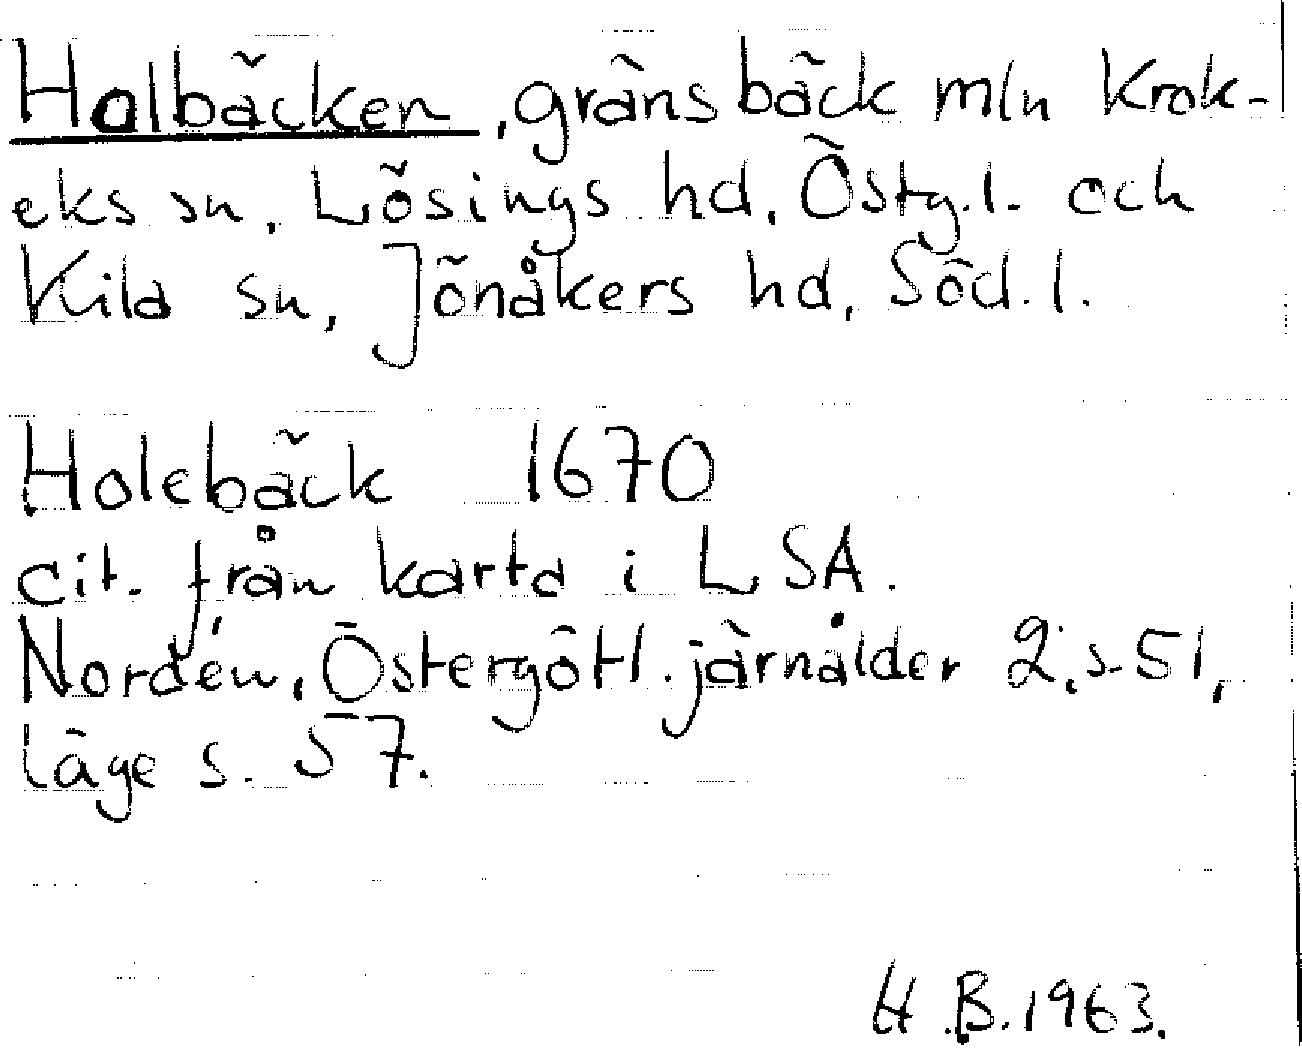 Holbäcken, gränsbäck mln Krok-
eks sn, Lösings hd, Östg.l. och
Kila sn, Jönåkers hd, Söd.l.
Holebäck 1670
cit. från karta i LSA.
Nordén, Östergötl. järnålder 2, s. 51,
läge s. 57.
H.B. 1963.